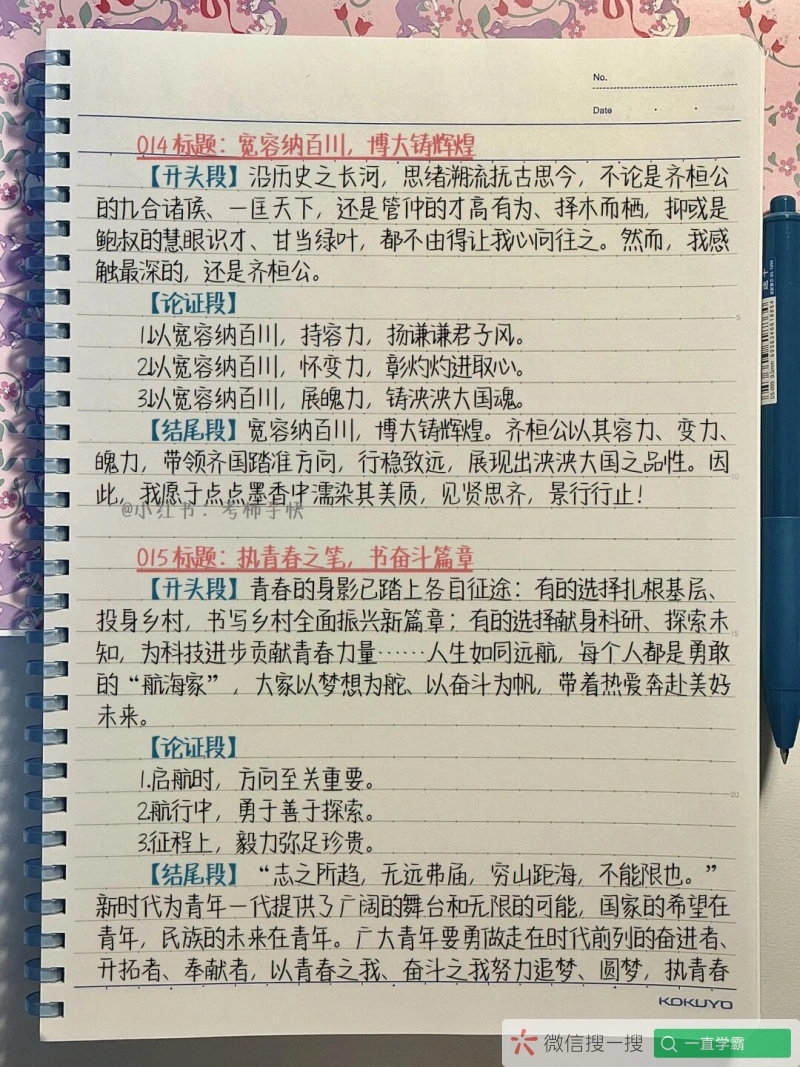 No.
Date
014标题：宽容纳百川，博大铸辉煌
【开头段】沿历史之长河，思绪溯流抚古思今，不论是齐桓公
的九合诸侯、一匡天下，还是管仲的才高有为、择木而栖，抑或是
鲍叔的慧眼识才、甘当绿叶，都不由得让我心向往之。然而，我感
触最深的，还是齐桓公。
【论证段】
1.以宽容纳百川，持容力，扬谦谦君子风。
2.以宽容纳百川，怀变力，彰灼灼进取心。
3.以宽容纳百川，展魄力，铸泱泱大国魂。
【结尾段】宽容纳百川，博大铸辉煌。齐桓公以其容力、变力、
魄力，带领齐国踏准方向，行稳致远，展现出泱泱大国之品性。因
此，我愿于点点墨香中濡染其美质，见贤思齐，景行行止！
@小红书：考神手快
015标题：执青春之笔，书奋斗篇章
【开头段】青春的身影已踏上各自征途：有的选择扎根基层、
投身乡村，书写乡村全面振兴新篇章；有的选择献身科研、探索未
知，为科技进步贡献青春力量……人生如同远航，每个人都是勇敢
的“航海家”，大家以梦想为舵、以奋斗为帆，带着热爱奔赴美好
未来。
【论证段】
1.启航时，方向至关重要。
2.航行中，勇于善于探索。
3.征程上，毅力弥足珍贵。
【结尾段】“志之所趋，无远弗届，穷山距海，不能限也。”
新时代为青年一代提供了广阔的舞台和无限的可能，国家的希望在
青年，民族的未来在青年。广大青年要勇做走在时代前列的奋进者、
开拓者、奉献者，以青春之我、奋斗之我努力追梦、圆梦，执青春
5
10
15
20
KOKUYO
微信搜一搜
一直学霸